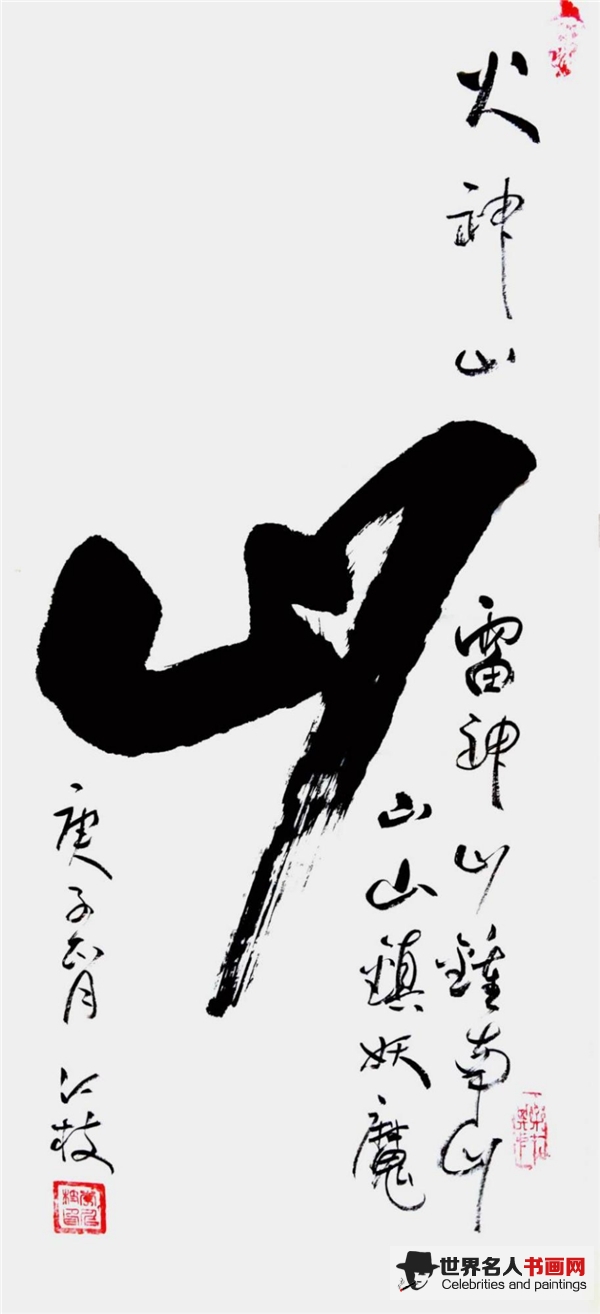 火神山
山
雷神山鍾南山
山山鎮妖魔
庚子正月
江枝
世界名人书画网
Celebrities and paintings